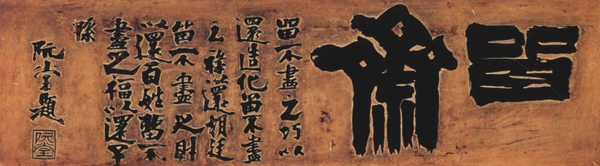 留
齋
留不盡之巧以
還造化留不盡
之祿還朝廷
留不盡之財
以還百姓留不
盡之福以還子
孫
題